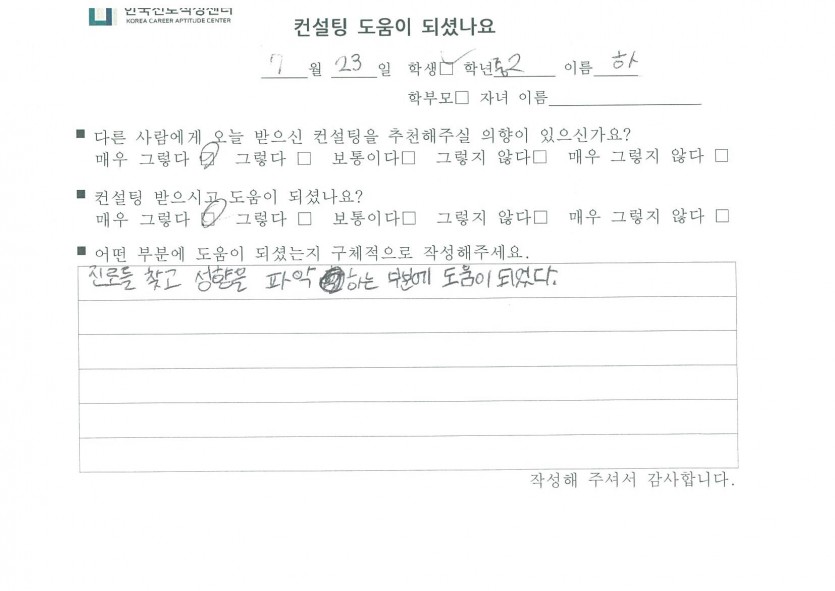 한국진로적성센터
KOREA CAREER APTITUDE CENTER
컨설팅 도움이 되셨나요
7월 23일 학생□ 학년 중2 이름 하
학부모□ 자녀 이름
■ 다른 사람에게 오늘 받으신 컨설팅을 추천해주실 의향이 있으신가요?
매우 그렇다 ☑ 그렇다 □ 보통이다□ 그렇지 않다□ 매우 그렇지 않다 □
■ 컨설팅 받으시고 도움이 되셨나요?
매우 그렇다 ☑ 그렇다 □ 보통이다□ 그렇지 않다□ 매우 그렇지 않다 □
■ 어떤 부분에 도움이 되셨는지 구체적으로 작성해주세요.
진로를 찾고 성향을 파악 하는 부분에 도움이 되었다.
작성해 주셔서 감사합니다.